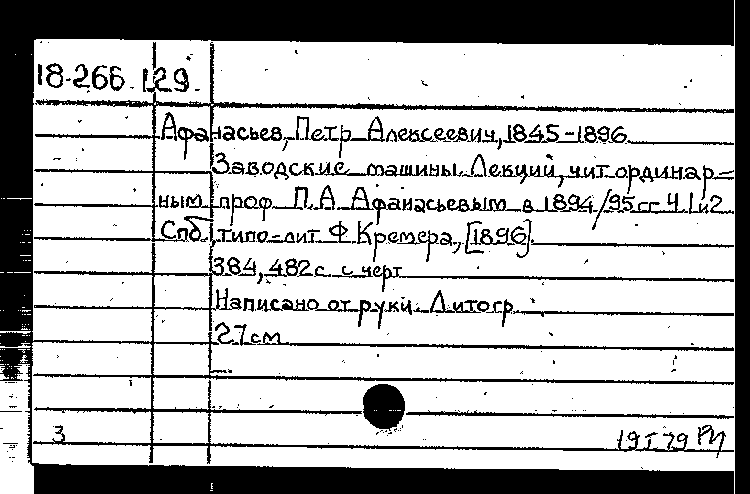 18-266.129.
Афанасьев, Петр Алексеевич, 1845-1896.
Заводские машины. Лекции, чит. ординар-
ным проф. П.А. Афанасьевым в 1894/95 гг. Ч. 1 и 2
Спб., типо-лит. Ф. Кремера, [1896].
384, 482 с. с черт.
Написано от руки. Литогр.
27 см.
3
19 I 79